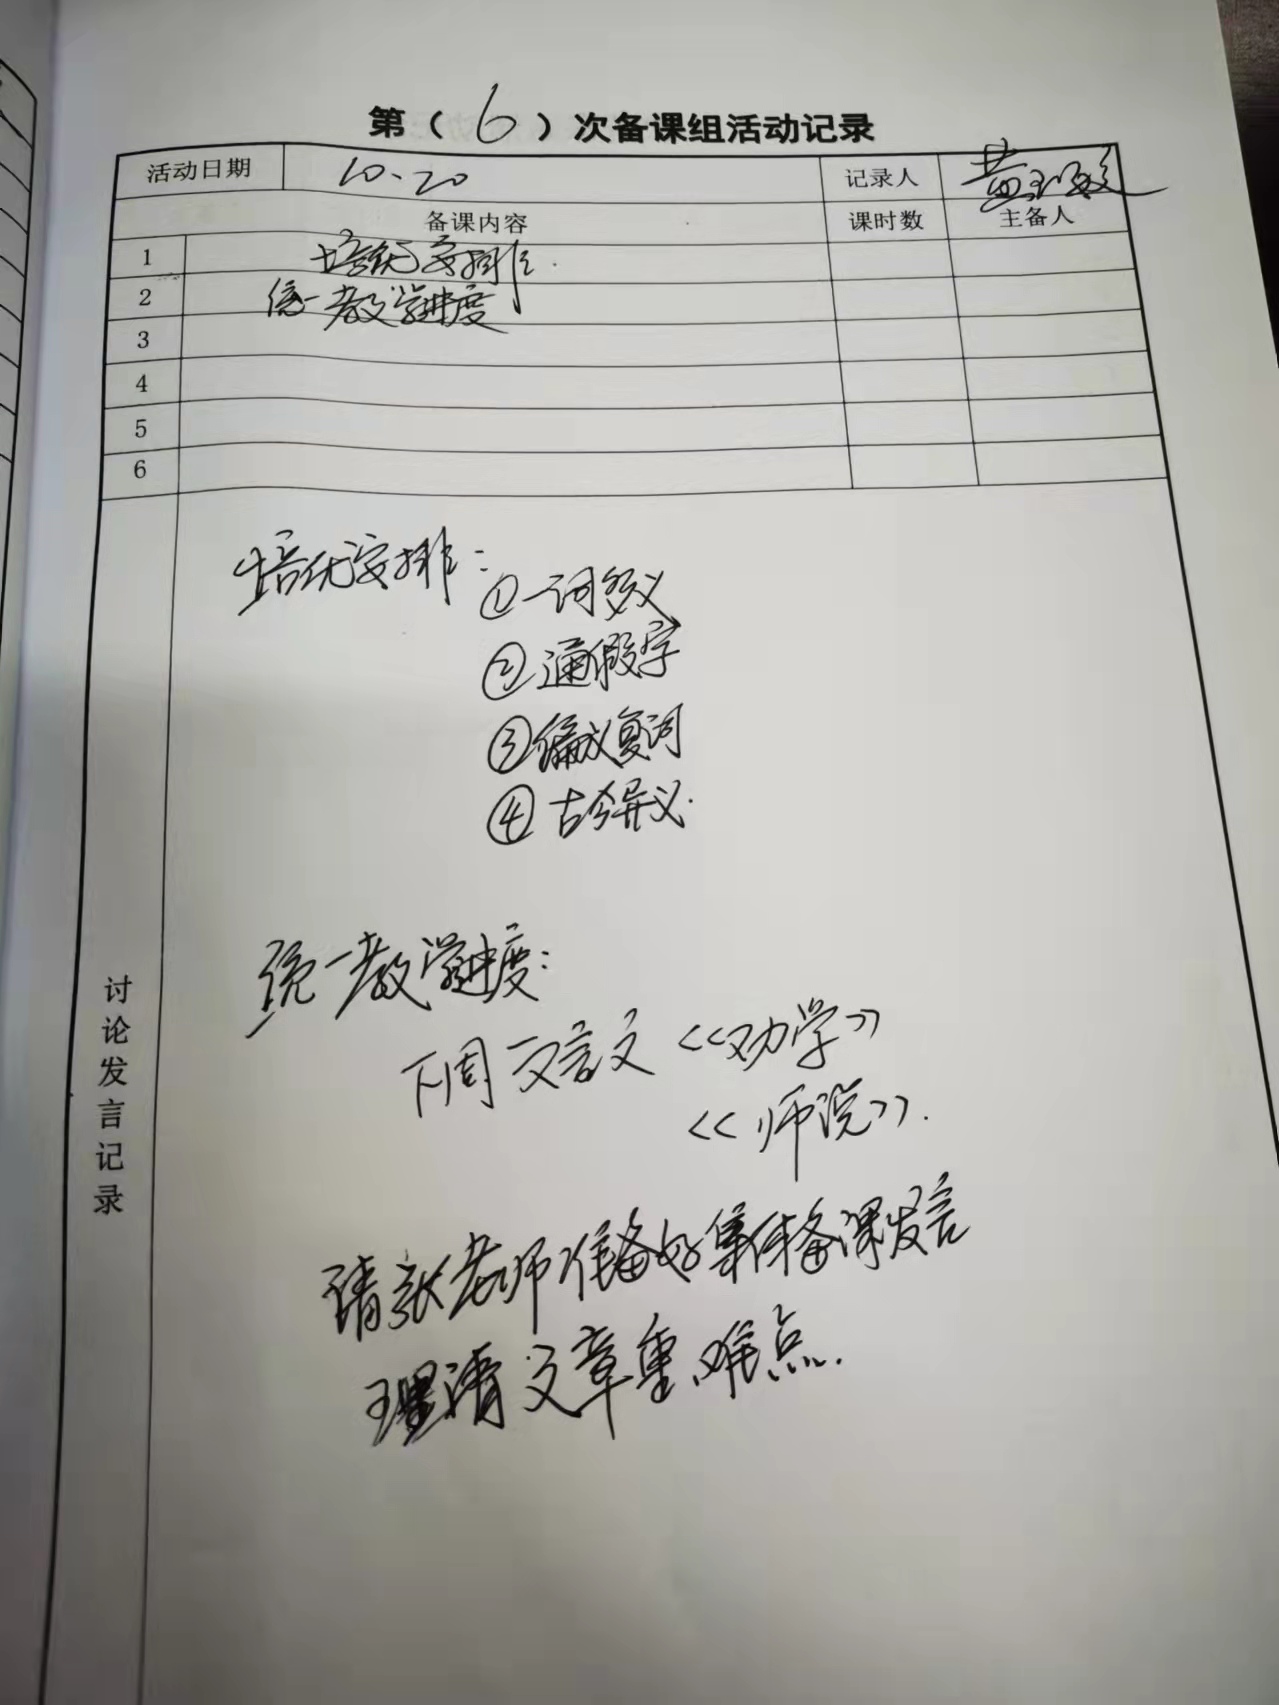 第（6）次备课组活动记录
活动日期 10.20 记录人 黄
备课内容 课时数 主备人
1 培优安排.
2 统一教学进度
3
4
5
6
讨论发言记录
培优安排：
①一词多义
②通假字
③偏义复词
④古今异义.
统一教学进度：
下周文言文《劝学》
《师说》.
请张老师准备好集体备课发言
理清文章重、难点.